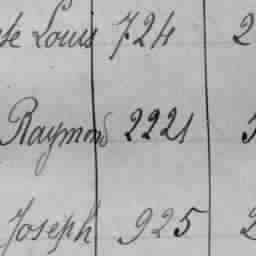 te Louis 724 2
Raymond 2221
Joseph 925 2